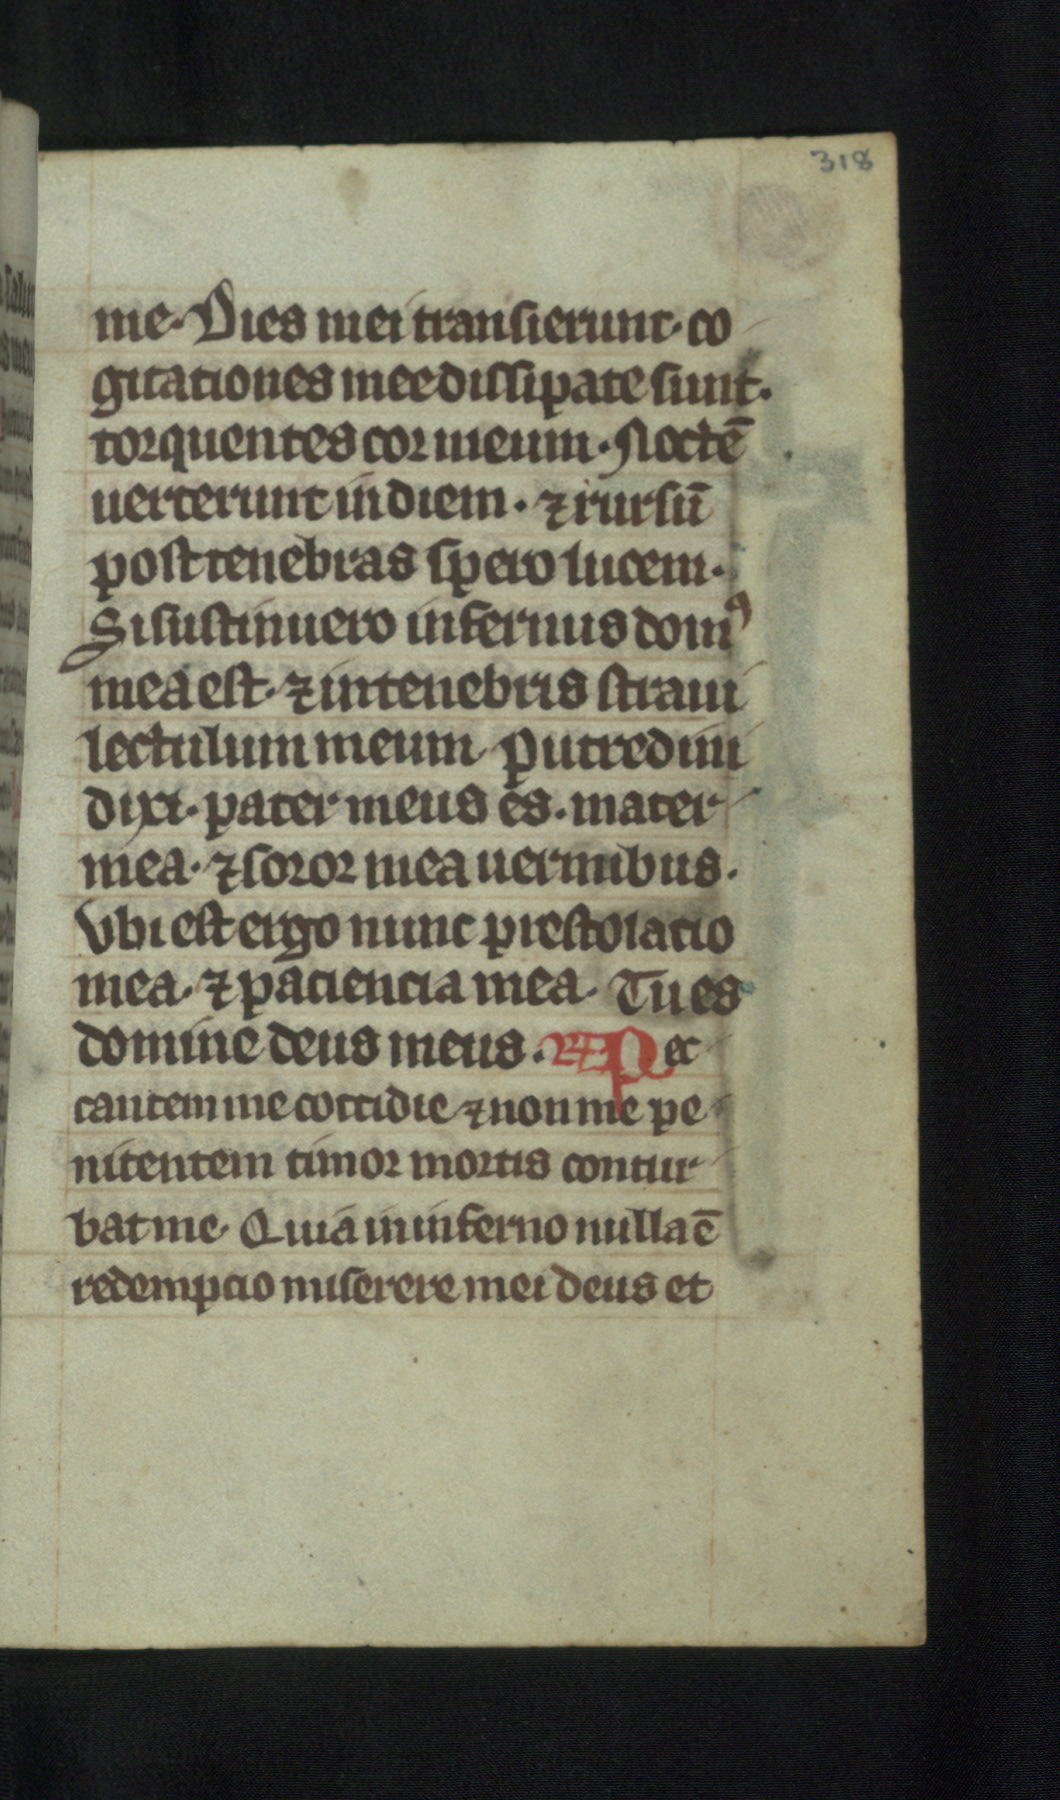 318
me. Dies mei transierunt. co
gitationes mee dissipate sunt.
torquentes cor meum. Noctē
uerterunt in diem. ⁊ rursū
post tenebras spero lucem.
Si sustinuero infernus domꝰ
mea est. ⁊ in tenebris straui
lectulum meum. Putredini
dixi. pater meus es. mater
mea. ⁊ soror mea uermibus.
Vbi est ergo nunc prestolacio
mea. ⁊ paciencia mea. Tu es
domine deus meus. R̸ Pec
cantem me cottidie ⁊ non me pe
nitentem timor mortis contur
bat me. Quia in inferno nulla ē
redempcio miserere mei deus et